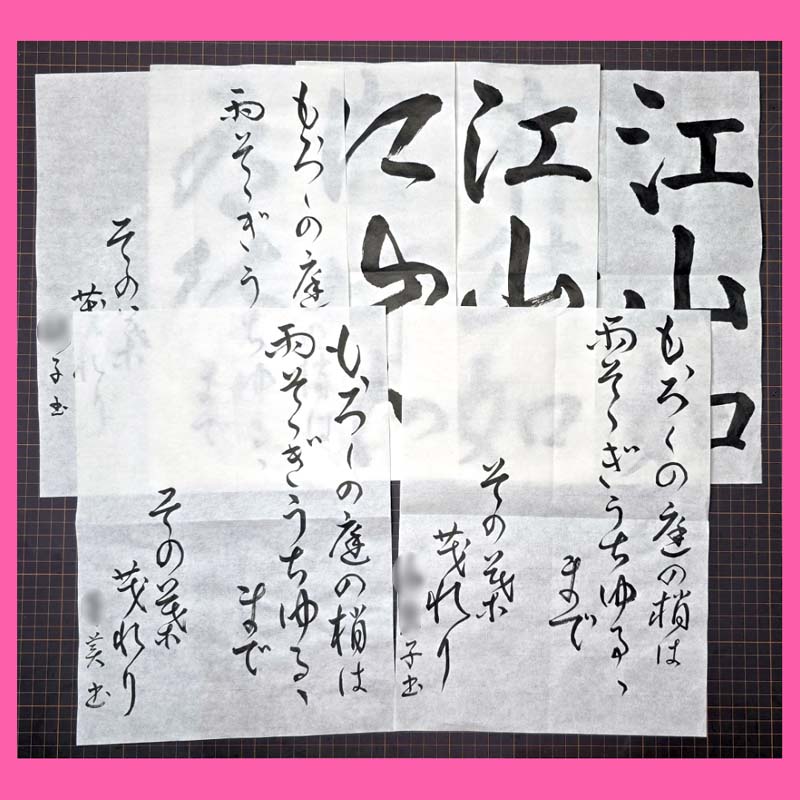 江山如
江山
もろ〱の庭
雨そゝぎう
その葉
茂れり
子書
もろ〱の庭の梢は
雨そゝぎうちゆるゝ
まで
その葉
茂れり
子書
もろ〱の庭の梢は
雨そゝぎうちゆるゝ
まで
その葉
茂れり
美書